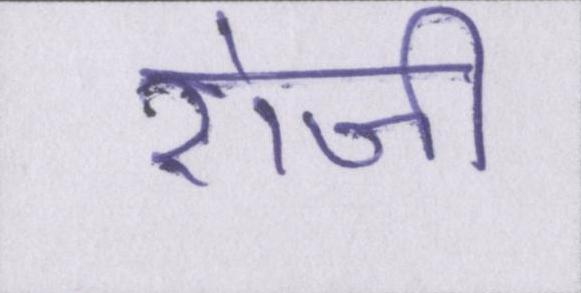 रोजी